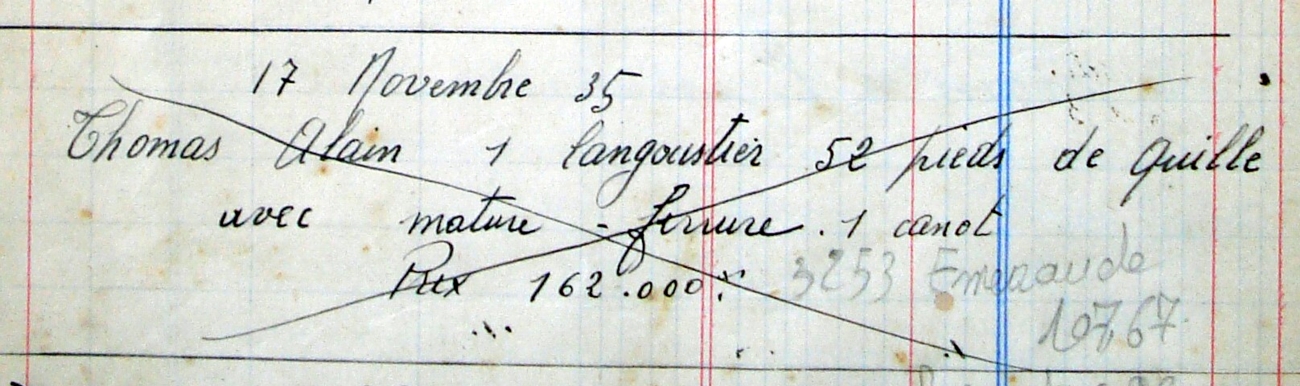 17 Novembre 35
Thomas Alain 1 langoustier 52 pieds de quille
avec mature - ferrure . 1 canot
Prix 162.000
3253 Emeraude
10767